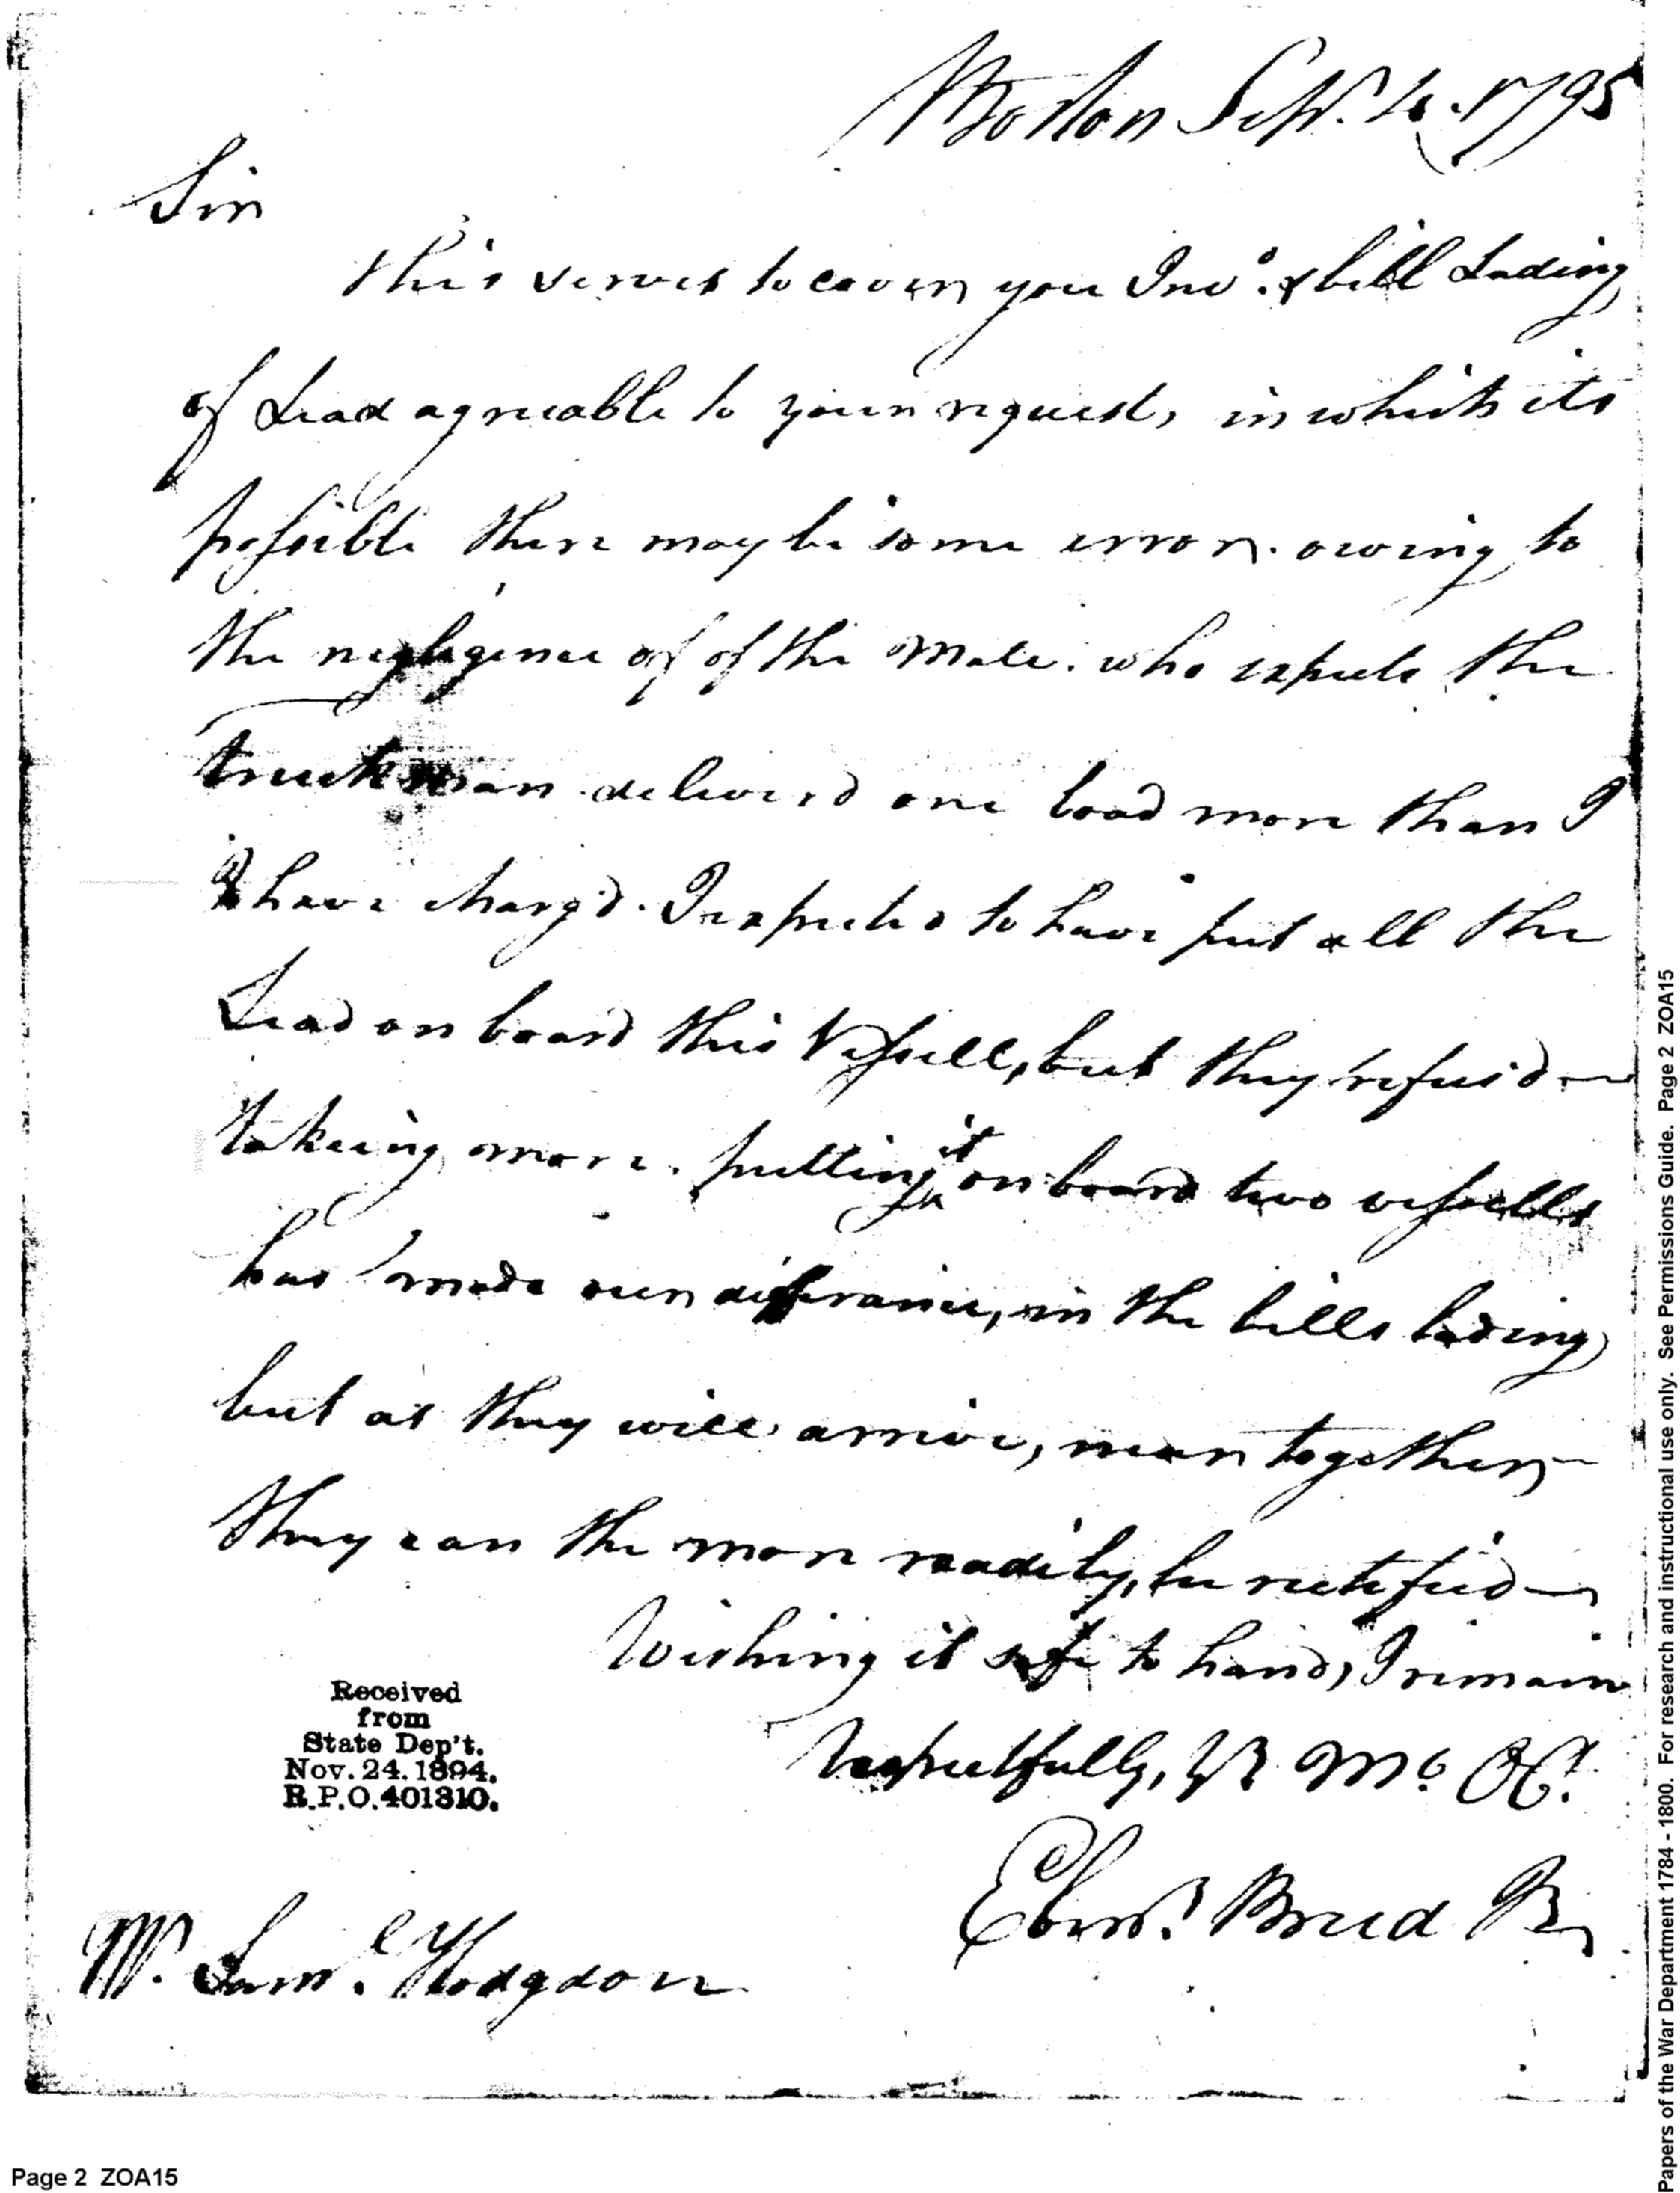 Boston Sepr. 4. 1795
Sir
this serves to cover you Invo. & bill Lading
of Lead agreeable to your request, in which its
possible there may be some error. owing to
the negligence of of the Mate. who expects the
truckman deliverd one load more than I
I have charg'd. I expected to have put all the
Lead on board this Vessell, but they refus'd
takeing more. putting it on board two vessells
has made our diferance, in the bills lading
but as they will arrive, near together
they can the more readily, be rectified
Wishing it safe to hand, I remain
Respectfully, Yr. Mo. Ob.
Ebenr. Breed
Mr. Saml. Hodgdon
Received
from
State Dep't.
Nov. 24. 1894.
R.P.O. 401310.
Page 2 ZOA15
Papers of the War Department 1784 - 1800. For research and instructional use only. See Permissions Guide. Page 2 ZOA15